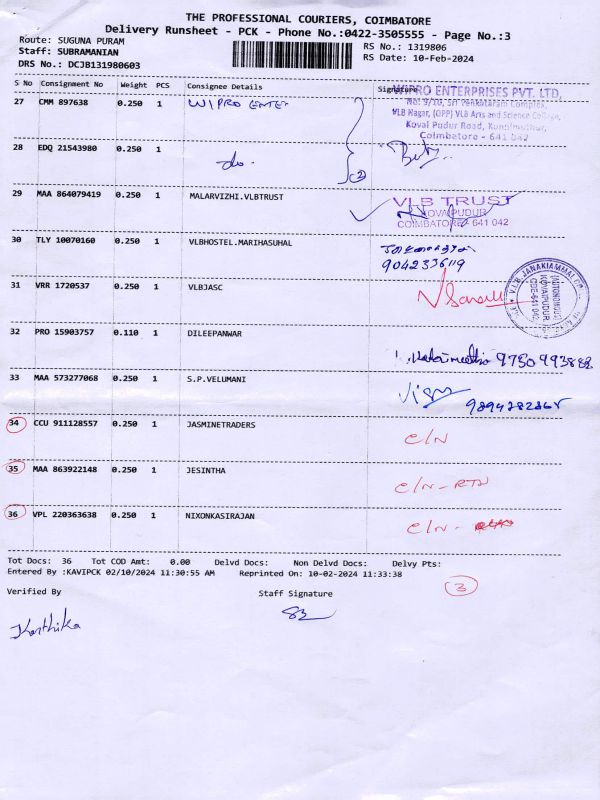 THE PROFESSIONAL COURIERS, COIMBATORE
Delivery Runsheet - PCK - Phone No.:0422-3505555 - Page No.:3
Route: SUGUNA PURAM
RS No.: 1319806
Staff: SUBRAMANIAN
RS Date: 10-Feb-2024
DRS No.: DCJB131980603
S No Consignment No Weight PCS Consignee Details Signature
27 CMM 897638 0.250 1 WIPRO ENTER
WIPRO ENTERPRISES PVT. LTD,
No: 9/10, Sri Venkataram Complex,
VLB Nagar, (OPP) VLB Arts and Science College,
Kovai Pudur Road, Kuniamuthur,
Coimbatore - 641 042
28 EDQ 21543980 0.250 1 do. 2
29 MAA 864079419 0.250 1 MALARVIZHI.VLBTRUST
VLB TRUST
KOVAIPUDUR
COIMBATORE - 641 042
30 TLY 10070160 0.250 1 VLBHOSTEL.MARIHASUHAL
9042336119
31 VRR 1720537 0.250 1 VLBJASC
V.L.B. JANAKIAMMAL
(AUTONOMOUS)
KOVAIPUDUR
CBE-641 042
32 PRO 15903757 0.110 1 DILEEPANWAR
33 MAA 573277068 0.250 1 S.P.VELUMANI
34 CCU 911128557 0.250 1 JASMINETRADERS C/N
35 MAA 863922148 0.250 1 JESINTHA C/N - RTN
36 VPL 220363638 0.250 1 NIXONKASIRAJAN C/N -
Tot Docs: 36 Tot COD Amt: 0.00 Delvd Docs: Non Delvd Docs: Delvy Pts:
Entered By :KAVIPCK 02/10/2024 11:30:55 AM Reprinted On: 10-02-2024 11:33:38
3
Verified By Staff Signature
Karthika